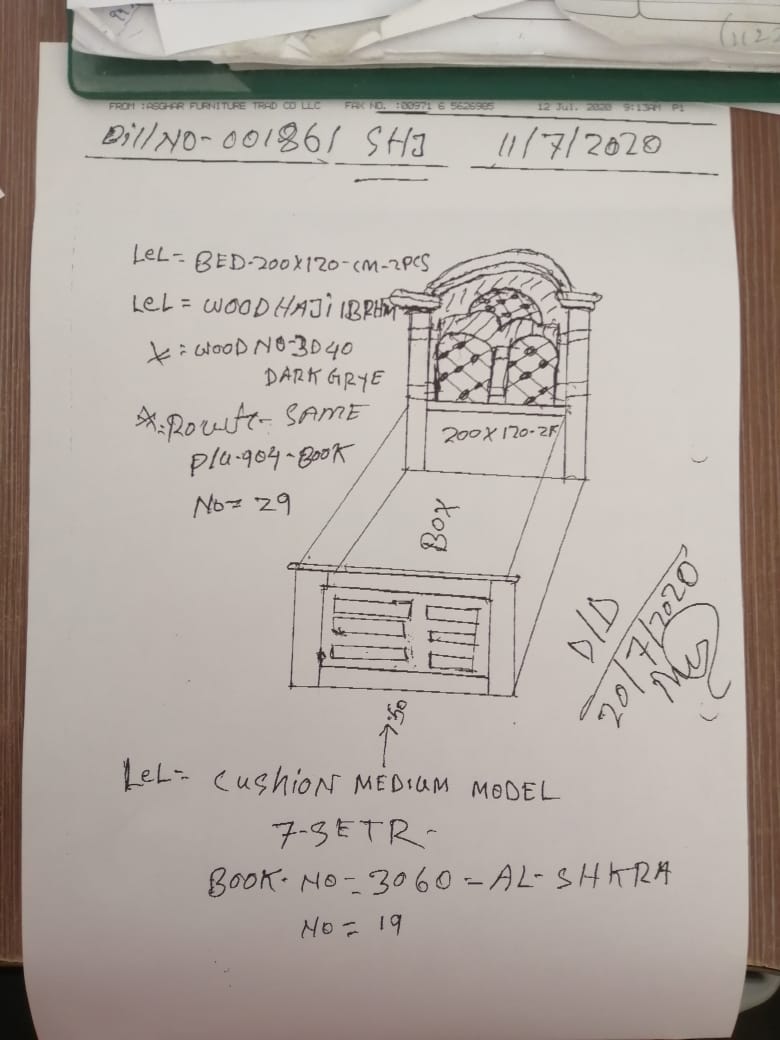 FROM :ASGHAR FURNITURE TRAD CO LLC FAX NO. :00971 6 5626985 12 Jul. 2020 9:13AM P1
Bill NO-001861 SHJ 11/7/2020
LeL= BED-200X120-CM-2PCS
LeL = WOOD HAJI IBRHM
X = WOOD NO-3D40
DARK GRYE
SAME
904-BOOK
No= 29
200X120-2P
BOX
D/D
20/7/2020
50
LeL= CushiON MEDIUM MODEL
7-SETR-
BOOK. NO=3060=AL-SHKRA
NO= 19